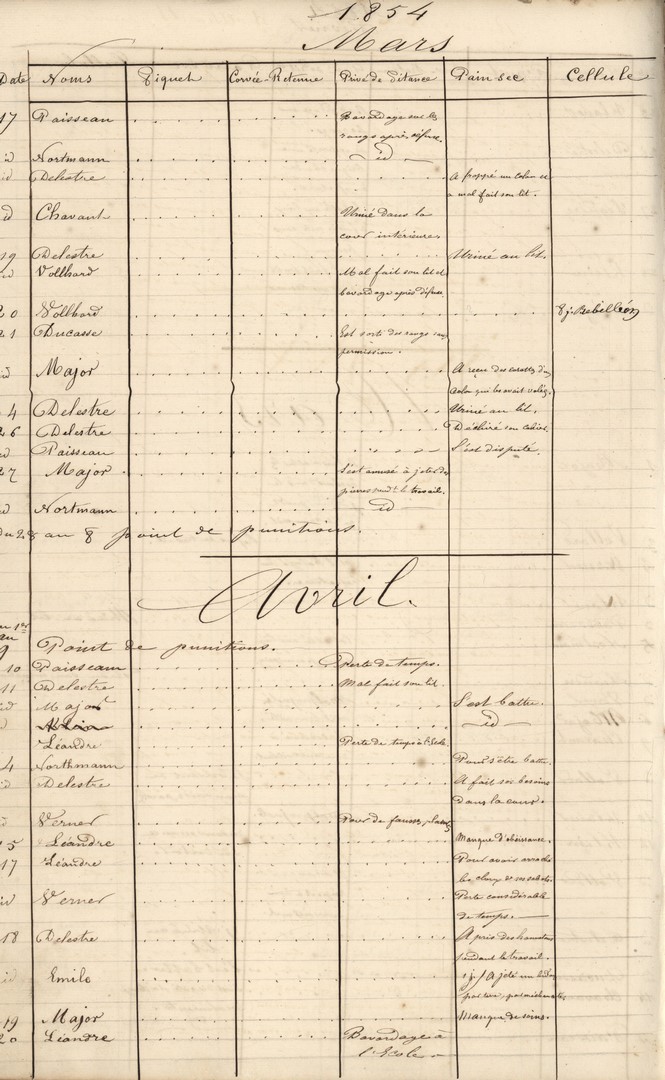 1854
Mars
Date Noms Piquet Corvée-Retenue Privé de détance Pain sec Cellule
17 Paisseau Bavardage sur les
rangs après défense.
id Nortmann id
id Delestre A frappé un colon et
a mal fait son lit.
id Chavant Uriné dans la
cour intérieure.
19 Delestre Uriné au lit.
id Vollhard Mal fait son lit et
bavardage après défense
20 Vollhard 8 j. Rebellion
21 Ducasse Est sorti des rangs sans
permission.
id Major A reçu des carottes d'un
colon qui les avait volées.
4 Delestre Uriné au lit.
26 Delestre Déchiré son cahier.
id Paisseau S'est disputé.
27 Major S'est amusé à jeter des
pierres pendt le travail.
id Nortmann id
du 28 au 8 point de punitions.
Avril.
au 1er
au
9 Point de punitions.
10 Paisseau Perte de temps.
11 Delestre Mal fait son lit
id Major S'est battu.
id
Léandre Perte de temps à l'École
4 Northmann Pour s'être battu.
id Delestre A fait ses besoins
dans la cour.
id Verner Pour de fausses plaintes
15 Léandre Manque d'obéissance.
17 Léandre Pour avoir arraché
les clous de ses sabots.
id Verner Perte considérable
de temps.
18 Delestre A pris des hannetons
pendant le travail.
id Emile 1 j. A jeté un
par méchanceté.
19 Major Manque de soins.
20 Léandre Bavardage à
l'École